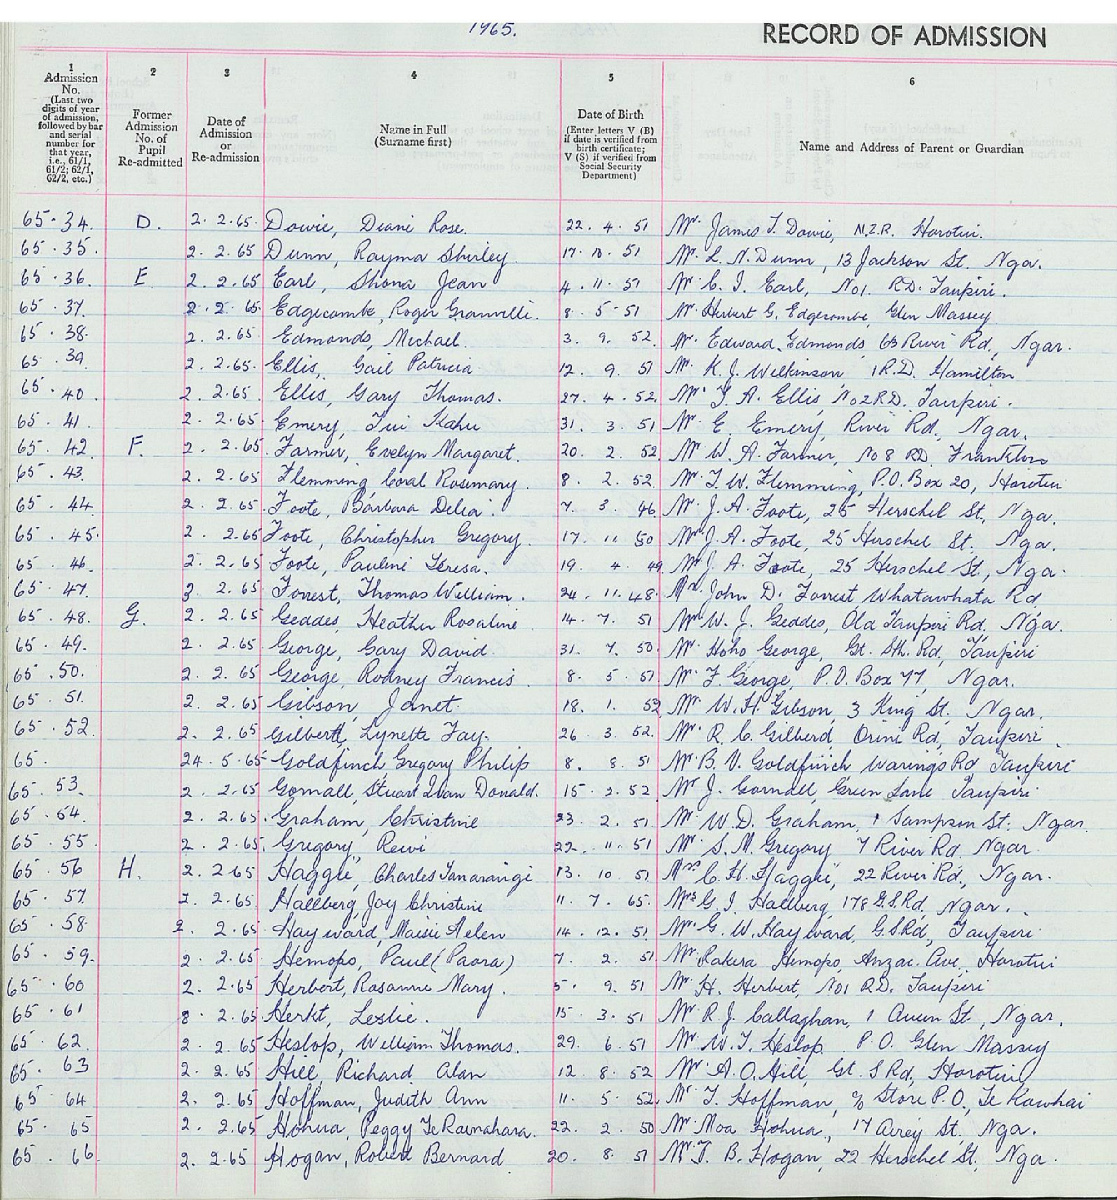 1965.
RECORD OF ADMISSION
1
Admission
No.
(Last two
digits of year
of admission,
followed by bar
and serial
number for
that year,
i.e., 61/1,
61/2; 62/1,
62/2, etc.)
2
Former
Admission
No. of
Pupil
Re-admitted
3
Date of
Admission
or
Re-admission
4
Name in Full
(Surname first)
5
Date of Birth
(Enter letters V (B)
if date is verified from
birth certificate;
V (S) if verified from
Social Security
Department)
6
Name and Address of Parent or Guardian
65·34. D. 2. 2.65. Dowie, Diane Rose. 22. 4. 51 Mr James T. Dowie, N.Z.R. Horotiu.
65·35. 2. 2.65 Dunn, Rayma Shirley 17. 10. 51 Mr L. N. Dunn, 13 Jackson St. Nga.
65·36. E 2. 2.65 Earl, Shona Jean 4. 11. 51 Mr C. I. Earl, No1. R.D. Taupiri.
65·37. 2. 2. 65 Edgecombe, Roger Granville. 8. 5. 51 Mr Herbert G. Edgecombe, Glen Massey
65·38. 2. 2.65. Edmonds, Michael. 3. 9. 52. Mr Edward Edmonds 63 River Rd, Ngar.
65·39. 2. 2.65. Ellis, Gail Patricia 12. 9. 51 Mr K. J. Wilkinson 1 R.D. Hamilton
65·40. 2. 2.65. Ellis, Gary Thomas. 27. 4. 52. Mr T. A. Ellis, No2 R.D. Taupiri.
65·41. 2. 2.65 Emery, Tui Kahu 31. 3. 51 Mr E. Emery, River Rd, Ngar.
65·42 F. 2. 2.65. Farmer, Evelyn Margaret. 20. 2. 52 Mr W. A. Farmer, No 8 RD. Frankton
65·43. 2. 2.65. Flemming, Coral Rosemary. 8. 2. 52. Mr T. W. Flemming, P.O. Box 20, Horotiu
65·44. 2. 2.65. Foote, Barbara Delia. 7. 3. 46. Mr J. A. Foote, 25 Herschel St, Nga.
65·45. 2. 2.65 Foote, Christopher Gregory. 17. 11. 50 Mr J. A. Foote, 25 Herschel St. Nga.
65·46. 2. 2.65 Foote, Pauline Teresa. 19. 4. 49 Mr J. A. Foote, 25 Herschel St, Nga.
65·47. 3. 2.65. Forrest, Thomas William. 24. 11. 48. Mr John D. Forrest Whatawhata Rd
65·48. G. 2. 2.65. Geddes, Heather Rosaline 14. 7. 51 Mr W. J. Geddes, Old Taupiri Rd, Nga.
65·49. 2. 2.65. George, Gary David 31. 7. 50. Mr Hoho George, Gt. Sth. Rd, Taupiri
65·50. 2. 2.65 George, Rodney Francis. 8. 5. 51 Mr F. George, P.O. Box 77, Ngar.
65·51. 2. 2.65 Gibson, Janet. 18. 1. Mr W. H. Gibson, 3 King St. Ngar.
65·52. 2. 2.65 Gilberd, Lynette Fay. 26. 3. 52. Mr R. C. Gilberd, Orini Rd, Taupiri.
65. 24. 5. 65 Goldfinch Gregory Philip 8. 8. 51 Mr B. V. Goldfinch Warings Rd Taupiri
65·53. 2. 2.65 Gornall, Stuart Ivan Donald. 15. 2. 52. Mr J. Gornall, Green Lane Taupiri.
65·54. 2. 2.65. Graham, Christine 23. 2. 51 Mr W. D. Graham, 1 Sampson St. Ngar.
65·55. 2. 2.65. Gregory, Rewi 22. 11. 51 Mr S. M. Gregory 7 River Rd. Ngar.
65·56 H. 2. 2.65 Haggie, Charles 13. 10. 51 Mrs C. H. Haggie, 22 River Rd, Ngar.
65·57. 2. 2.65. Hallberg, Joy Christine 11. 7. 65. Mrs G. I. Hallberg, 178 G.S.Rd, Ngar.
65·58. 2. 2.65. Hayward, Maisie Helen 14. 12. 51. Mr G. W. Hayward, G.S.Rd, Taupiri.
65·59. 2. 2.65 Hemopo, Paul (Paora) 7. 2. 51 Mr Rakera Hemopo, Anzac Ave, Horotiu
65·60 2. 2.65 Herbert, Rosanne Mary. 5. 9. 51 Mr H. Herbert, No1 R.D. Taupiri
65·61 8. 2.65 Herkt, Leslie. 15. 3. 51 Mr R. J. Callaghan, 1 St, Ngar.
65·62. 2. 2.65 Heslop, William Thomas. 29. 6. 51 Mr W. T. Heslop. P.O. Glen Massey
65·63 2. 2.65 Hill, Richard Alan 12. 8. 52 Mr A. O. Hill, Gt. S Rd, Horotiu
65·64 2. 2.65 Hoffman, Judith Ann 11. 5. 52. Mr T. Hoffman, c/o Store P.O, Te Kowhai
65·65 2. 2.65 Hohua, Peggy Te 22. 2. 50 Mr Moa Hohua, 17 Avrey St, Nga.
65·66 2. 2.65 Hogan, Robert Bernard 20. 8. 51 Mr T. B. Hogan, 22 Herschel St, Nga.